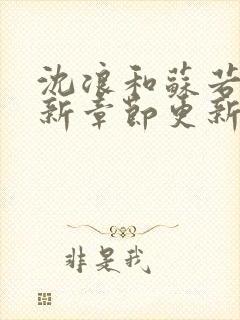 沈浪和蘇若
新章節更新
非是我